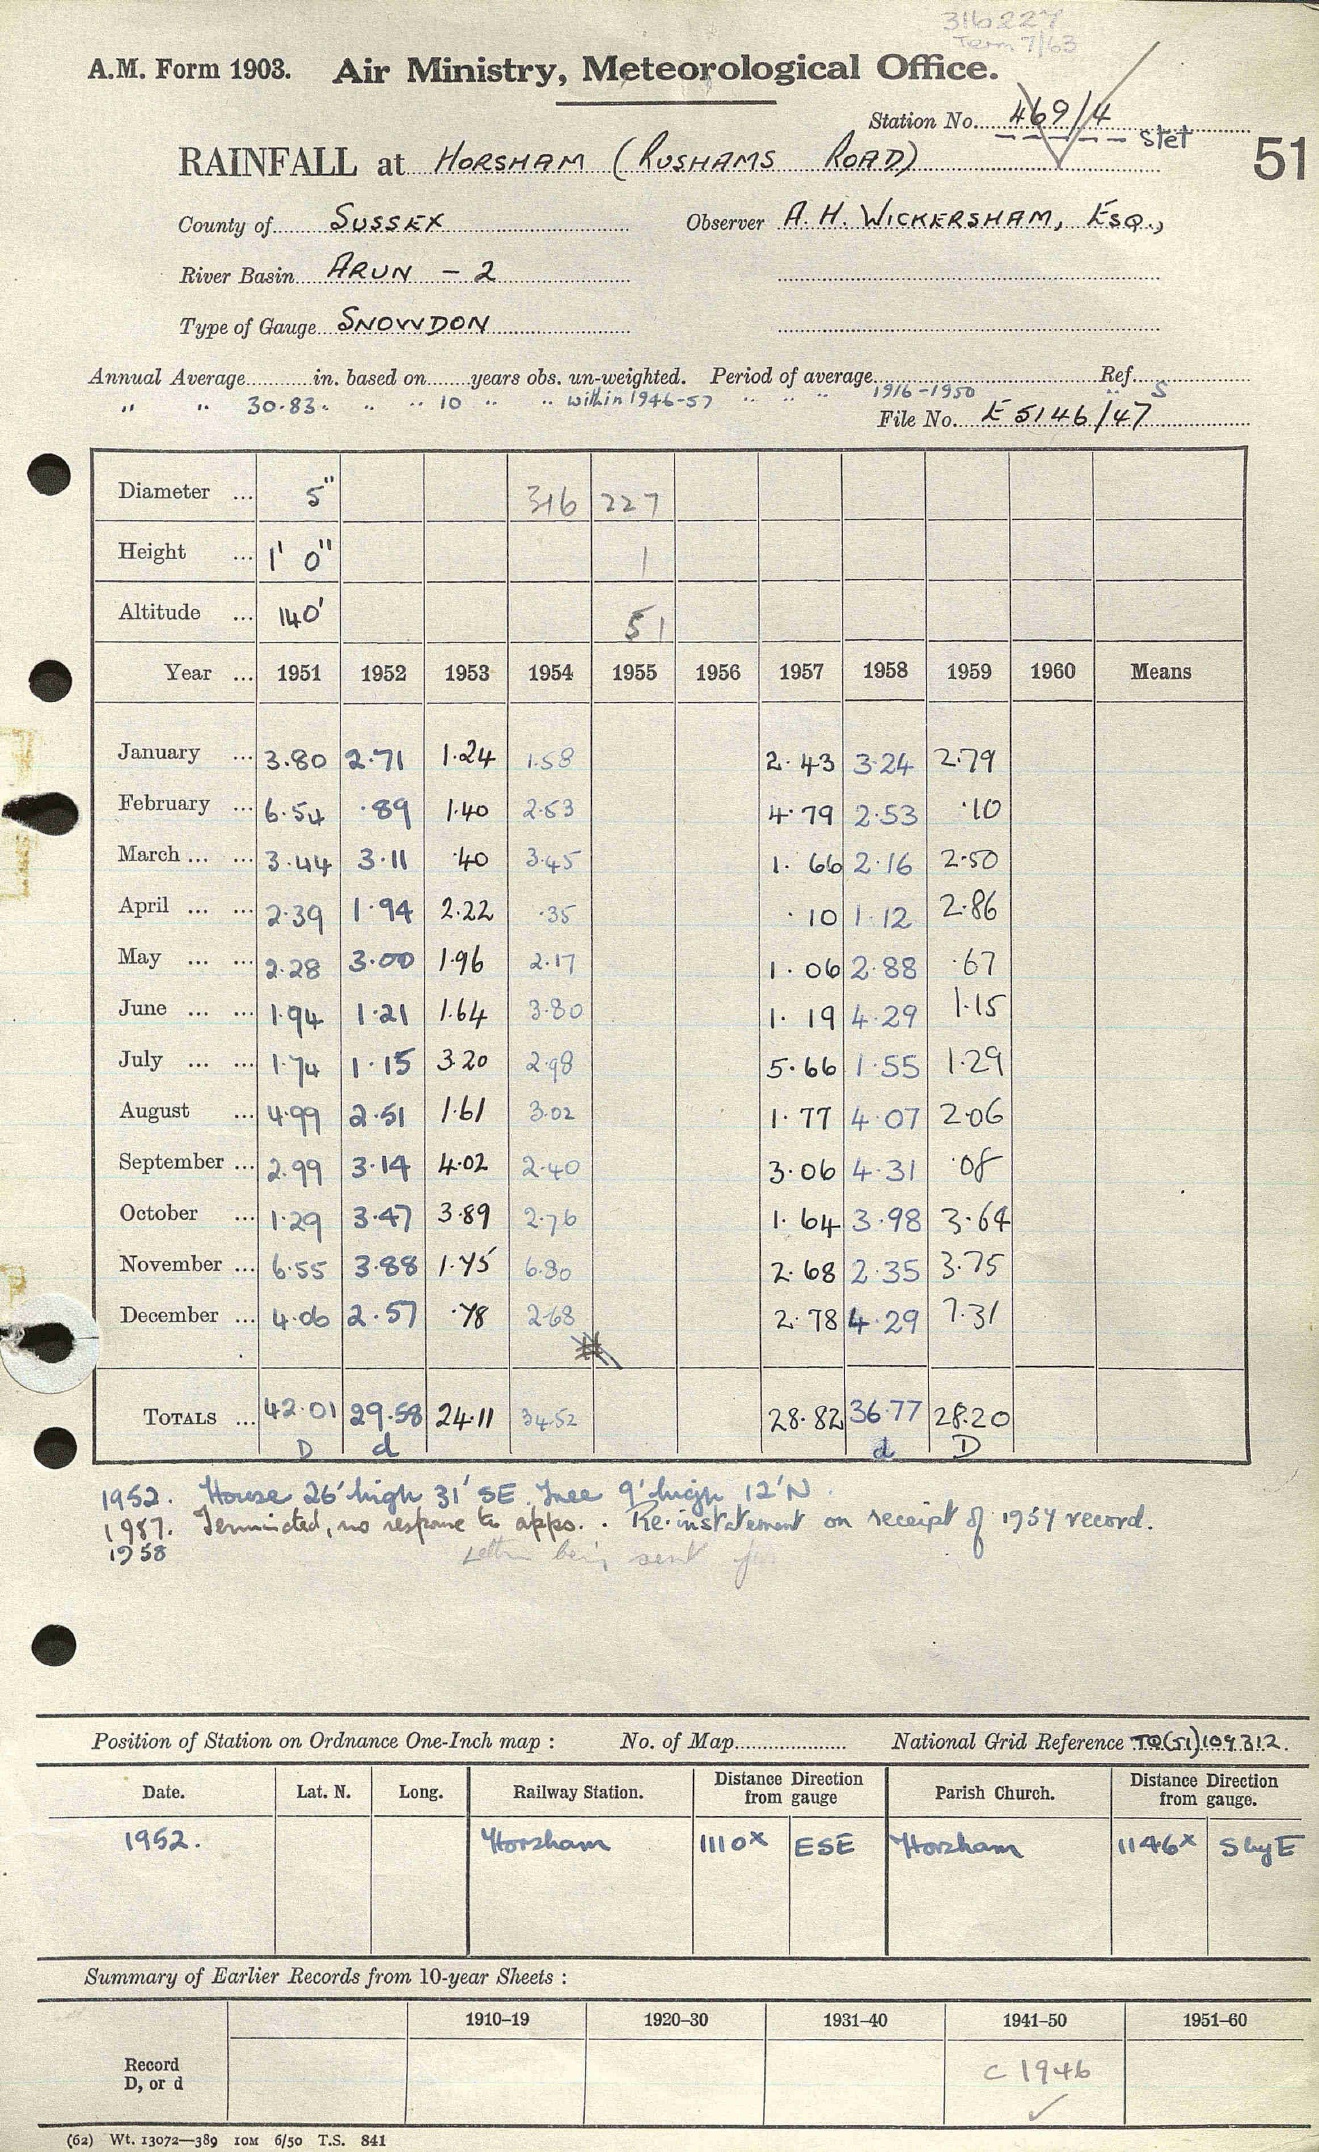 316227
Term 7/63
A.M. Form 1903. Air Ministry, Meteorological Office.
Station No. 469/4
Stet
51
RAINFALL at HORSHAM (RUSHAMS ROAD)
County of SUSSEX Observer A. H. WICKERSHAM, ESQ.,
River Basin ARUN - 2
Type of Gauge SNOWDON
Annual Average in. based on years obs. un-weighted. Period of average Ref.
" " 30.83. " " 10 " " within 1946-57 " " " 1916-1950 " S
File No. E 5146/47
Diameter ... 5" 316 227
Height ... 1' 0" 1
Altitude ... 140' 51
Year ... 1951 1952 1953 1954 1955 1956 1957 1958 1959 1960 Means
January ... 3.80 2.71 1.24 1.58 2.43 3.24 2.79
February ... 6.54 .89 1.40 2.53 4.79 2.53 .10
March ... ... 3.44 3.11 .40 3.45 1.66 2.16 2.50
April ... ... 2.39 1.94 2.22 .35 .10 1.12 2.86
May ... ... 2.28 3.00 1.96 2.17 1.06 2.88 .67
June ... ... 1.94 1.21 1.64 3.80 1.19 4.29 1.15
July ... ... 1.74 1.15 3.20 2.98 5.66 1.55 1.29
August ... 4.99 2.51 1.61 3.02 1.77 4.07 2.06
September ... 2.99 3.14 4.02 2.40 3.06 4.31 .08
October ... 1.29 3.47 3.89 2.76 1.64 3.98 3.64
November ... 6.55 3.88 1.75 6.80 2.68 2.35 3.75
December ... 4.06 2.57 .78 2.68 2.78 4.29 7.31
TOTALS ... 42.01 29.58 24.11 34.52 28.82 36.77 28.20
D d d D
1952. House 26' high 31' SE. Tree 9' high 12' N.
1957. Terminated, no response to apps. . Re-instatement on receipt of 1957 record.
1958 Letter being sent for
Position of Station on Ordnance One-Inch map : No. of Map National Grid Reference TQ(51)109312.
Date. Lat. N. Long. Railway Station. Distance Direction from gauge Parish Church. Distance Direction from gauge.
1952. Horsham 1110x ESE Horsham 1146x S by E
Summary of Earlier Records from 10-year Sheets :
1910–19 1920–30 1931–40 1941–50 1951–60
Record
D, or d
c 1946
(62) Wt. 13072—389 10M 6/50 T.S. 841